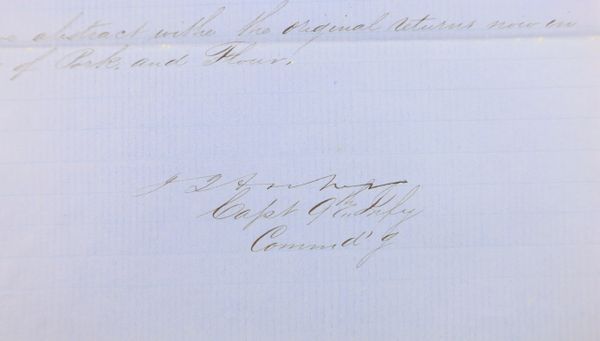 abstract withe the original returns now in
of Pork and Flour.
J
Capt 9th Infy
Commd'g